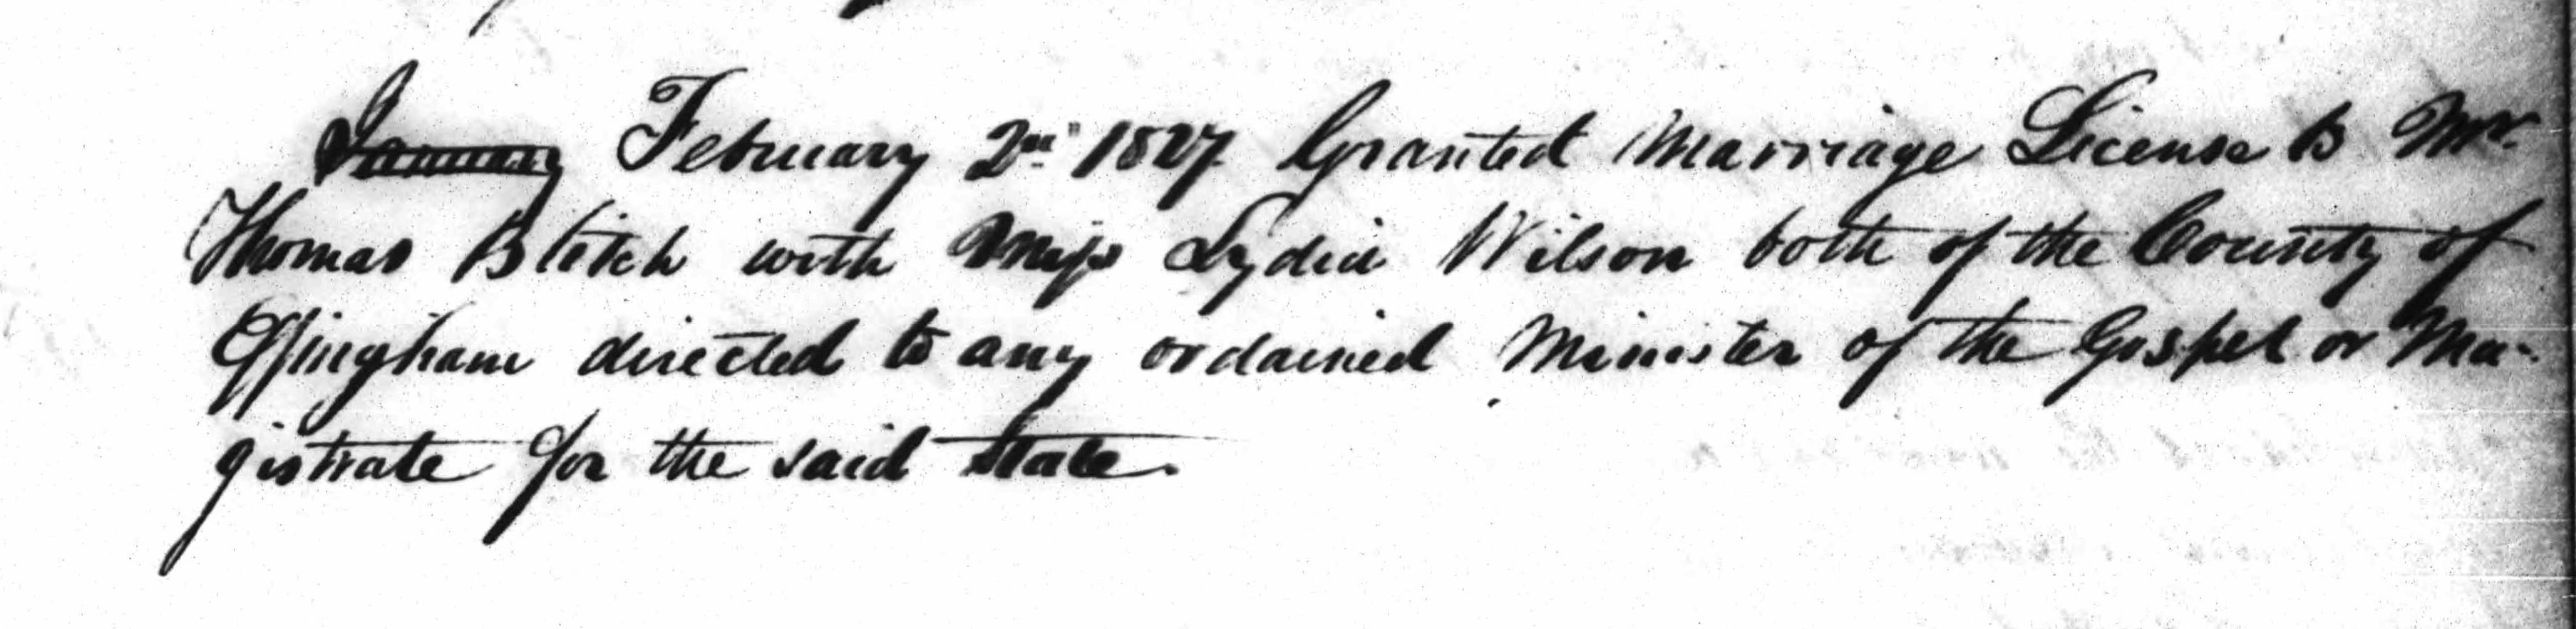 January February 2nd 1827 Granted Marriage License to Mr.
Thomas Blitch with Miss Lydia Wilson both of the County of
Effingham directed to any ordained Minister of the Gospel or Ma-
gistrate for the said State.